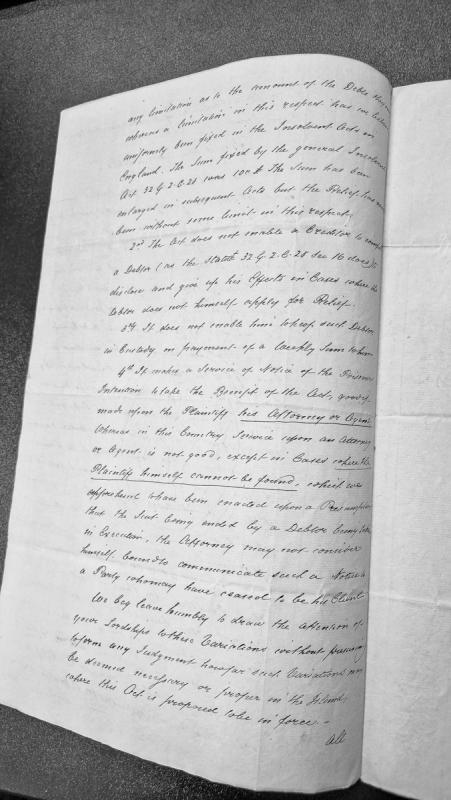 any limitation as to the amount of the Debts
whereas a limitation in this respect has in
uniformly been fixed in the Insolvent Acts in
England. The Sum fixed by the general Insolvent
Act 32 G. 2. C. 28 was 100£ The Sum has been
enlarged in subsequent Acts but the Relief has
been without some limit in this respect,
2nd The Act does not enable a Creditor to
a Debtor (as the Statute 32 G. 2. C. 28 sec 16 does) to
disclose and give up his Effects in Cases where the
debtor does not himself apply for Relief.
3rd It does not enable him to keep such Debtor
in Custody on payment of a Weekly Sum to him
4th It makes a Service of Notice of the Prisoners
Intention to take the Benefit of the Act, good if
made upon the Plaintiff his Attorney or Agent
Whereas in this Country Service upon an Attorney
or Agent is not good, except in Cases where the
Plaintiff himself cannot be found, which we
apprehend to have been enacted upon a Presumption
that the Suit being ended by a Debtor being taken
in Execution, the Attorney may not consider
himself bound to communicate such a Notice to
a Party who may have ceased to be his Client
We beg leave humbly to draw the attention of
your Lordships to these Variations without presuming
to form any Judgment how far such Variations may
be deemed necessary or proper in the Island,
where this Act is proposed to be in force. –
All